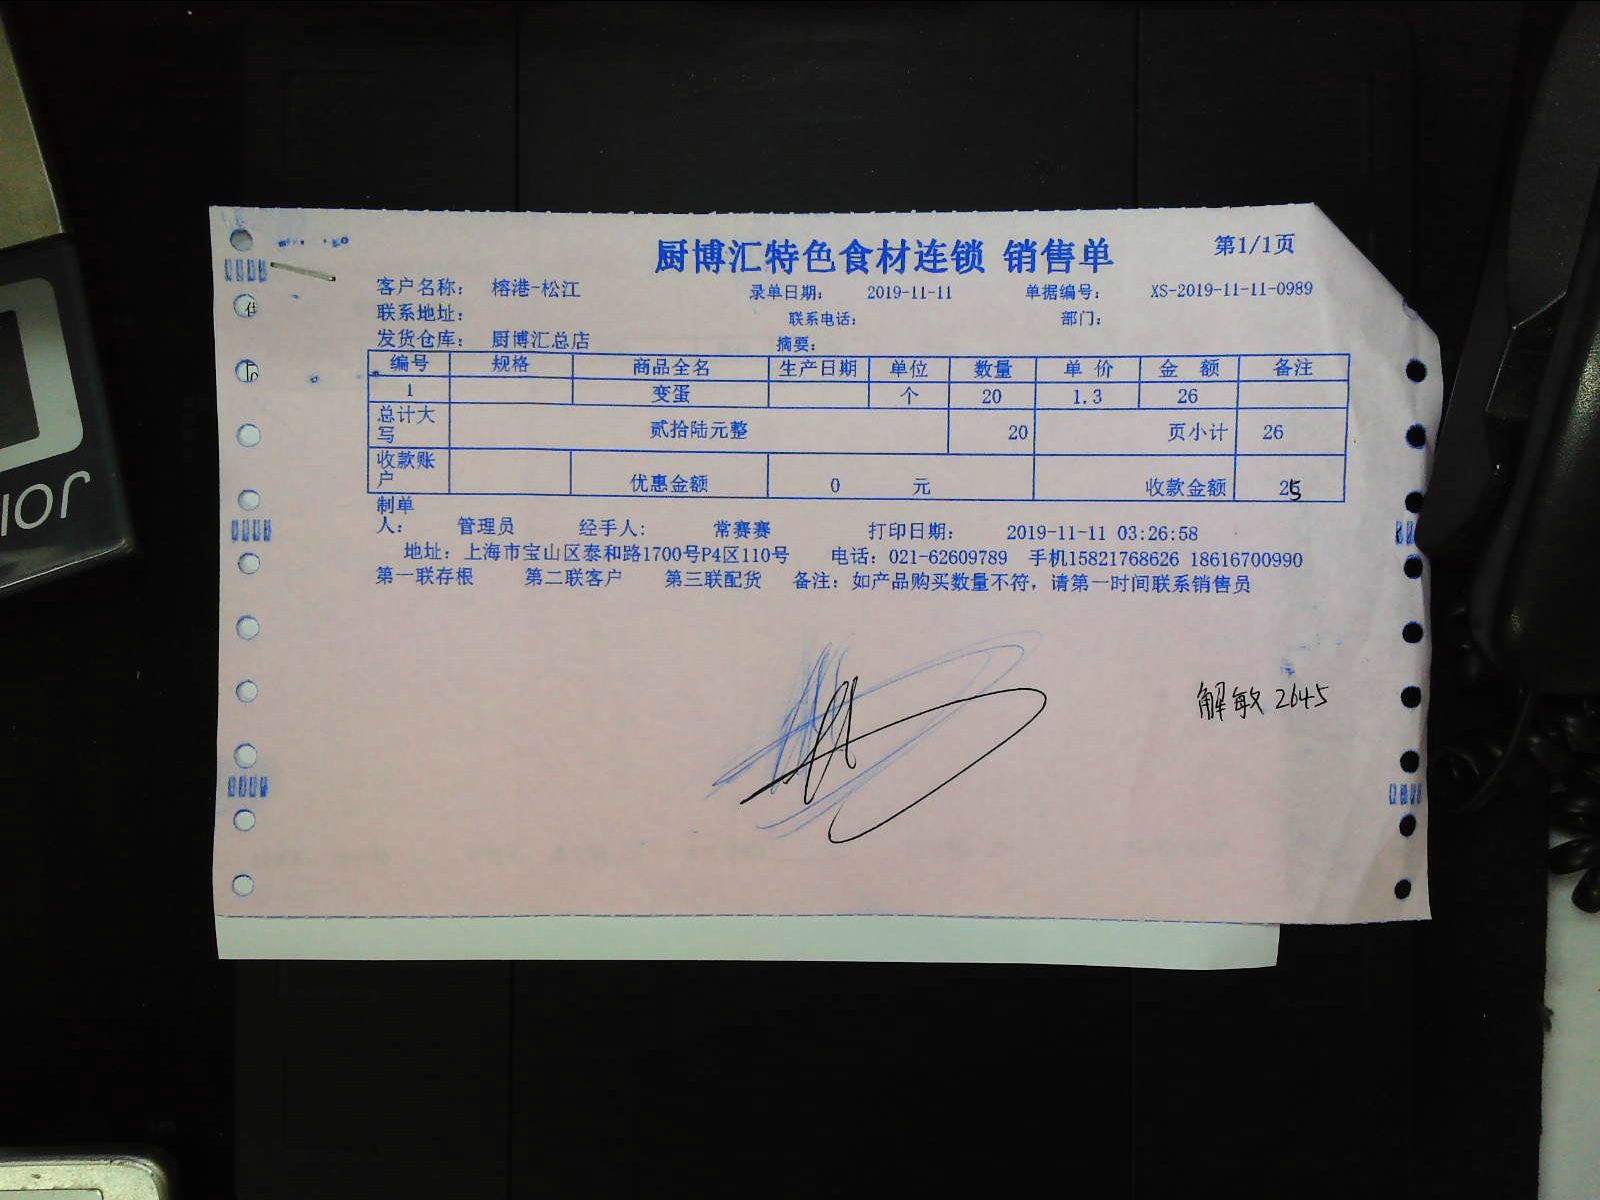 厨博汇特色食材连锁 销售单 第1/1页
客户名称： 榕港-松江 录单日期： 2019-11-11 单据编号： XS-2019-11-11-0989
联系地址： 联系电话： 部门：
发货仓库： 厨博汇总店 摘要：
编号 规格 商品全名 生产日期 单位 数量 单 价 金 额 备注
1 变蛋 个 20 1.3 26
总计大写 贰拾陆元整 20 页小计 26
收款账户 优惠金额 0 元 收款金额 25
制单人： 管理员 经手人： 常赛赛 打印日期： 2019-11-11 03:26:58
地址：上海市宝山区泰和路1700号P4区110号 电话：021-62609789 手机15821768626 18616700990
第一联存根 第二联客户 第三联配货 备注：如产品购买数量不符，请第一时间联系销售员
解敏 2645